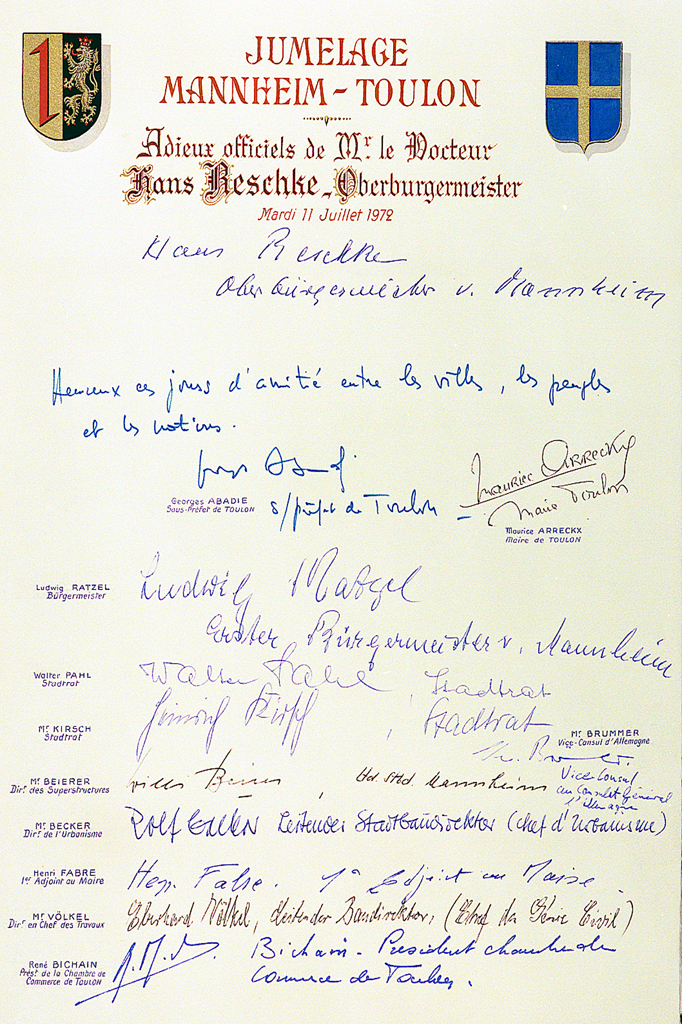 JUMELAGE
MANNHEIM - TOULON
Adieux officiels de Mr. le Docteur
Hans Reschke - Oberburgermeister
Mardi 11 Juillet 1972
Hans Reschke
Oberbürgermeister v. Mannheim
Heureux ces jours d'amitié entre les villes, les peuples
et les nations.
Georges ABADIE
Sous-Préfet de TOULON
s/préfet de Toulon
Maurice ARRECKX
Maire Toulon
Maurice ARRECKX
Maire de TOULON
Ludwig RATZEL
Bürgermeister
Ludwig Ratzel
Erster Bürgermeister v. Mannheim
Walter PAHL
Stadtrat
Walter Pahl, Stadtrat
Mr KIRSCH
Stadtrat
Heinrich Kirsch, Stadtrat
Mr BRUMMER
Vice-Consul d'Allemagne
Vice Consul
au Consulat Général
d'Allemagne
Mr BEIERER
Dir. des Superstructures
Willi, Mannheim
Mr BECKER
Dir. de l'Urbanisme
Rolf Becker Leitender Stadtbaudirektor (chef d'Urbanisme)
Henri FABRE
1er Adjoint au Maire
Hen. Fabre. 1er Adjoint au Maire
Mr VÖLKEL
Dir. en Chef des Travaux
Eberhard Völkel, Leitender Baudirektor, (Chef du Génie Civil)
René BICHAIN
Prést. de la Chambre de
Commerce de TOULON
Bichain - Président chambre de
Commerce de Toulon.